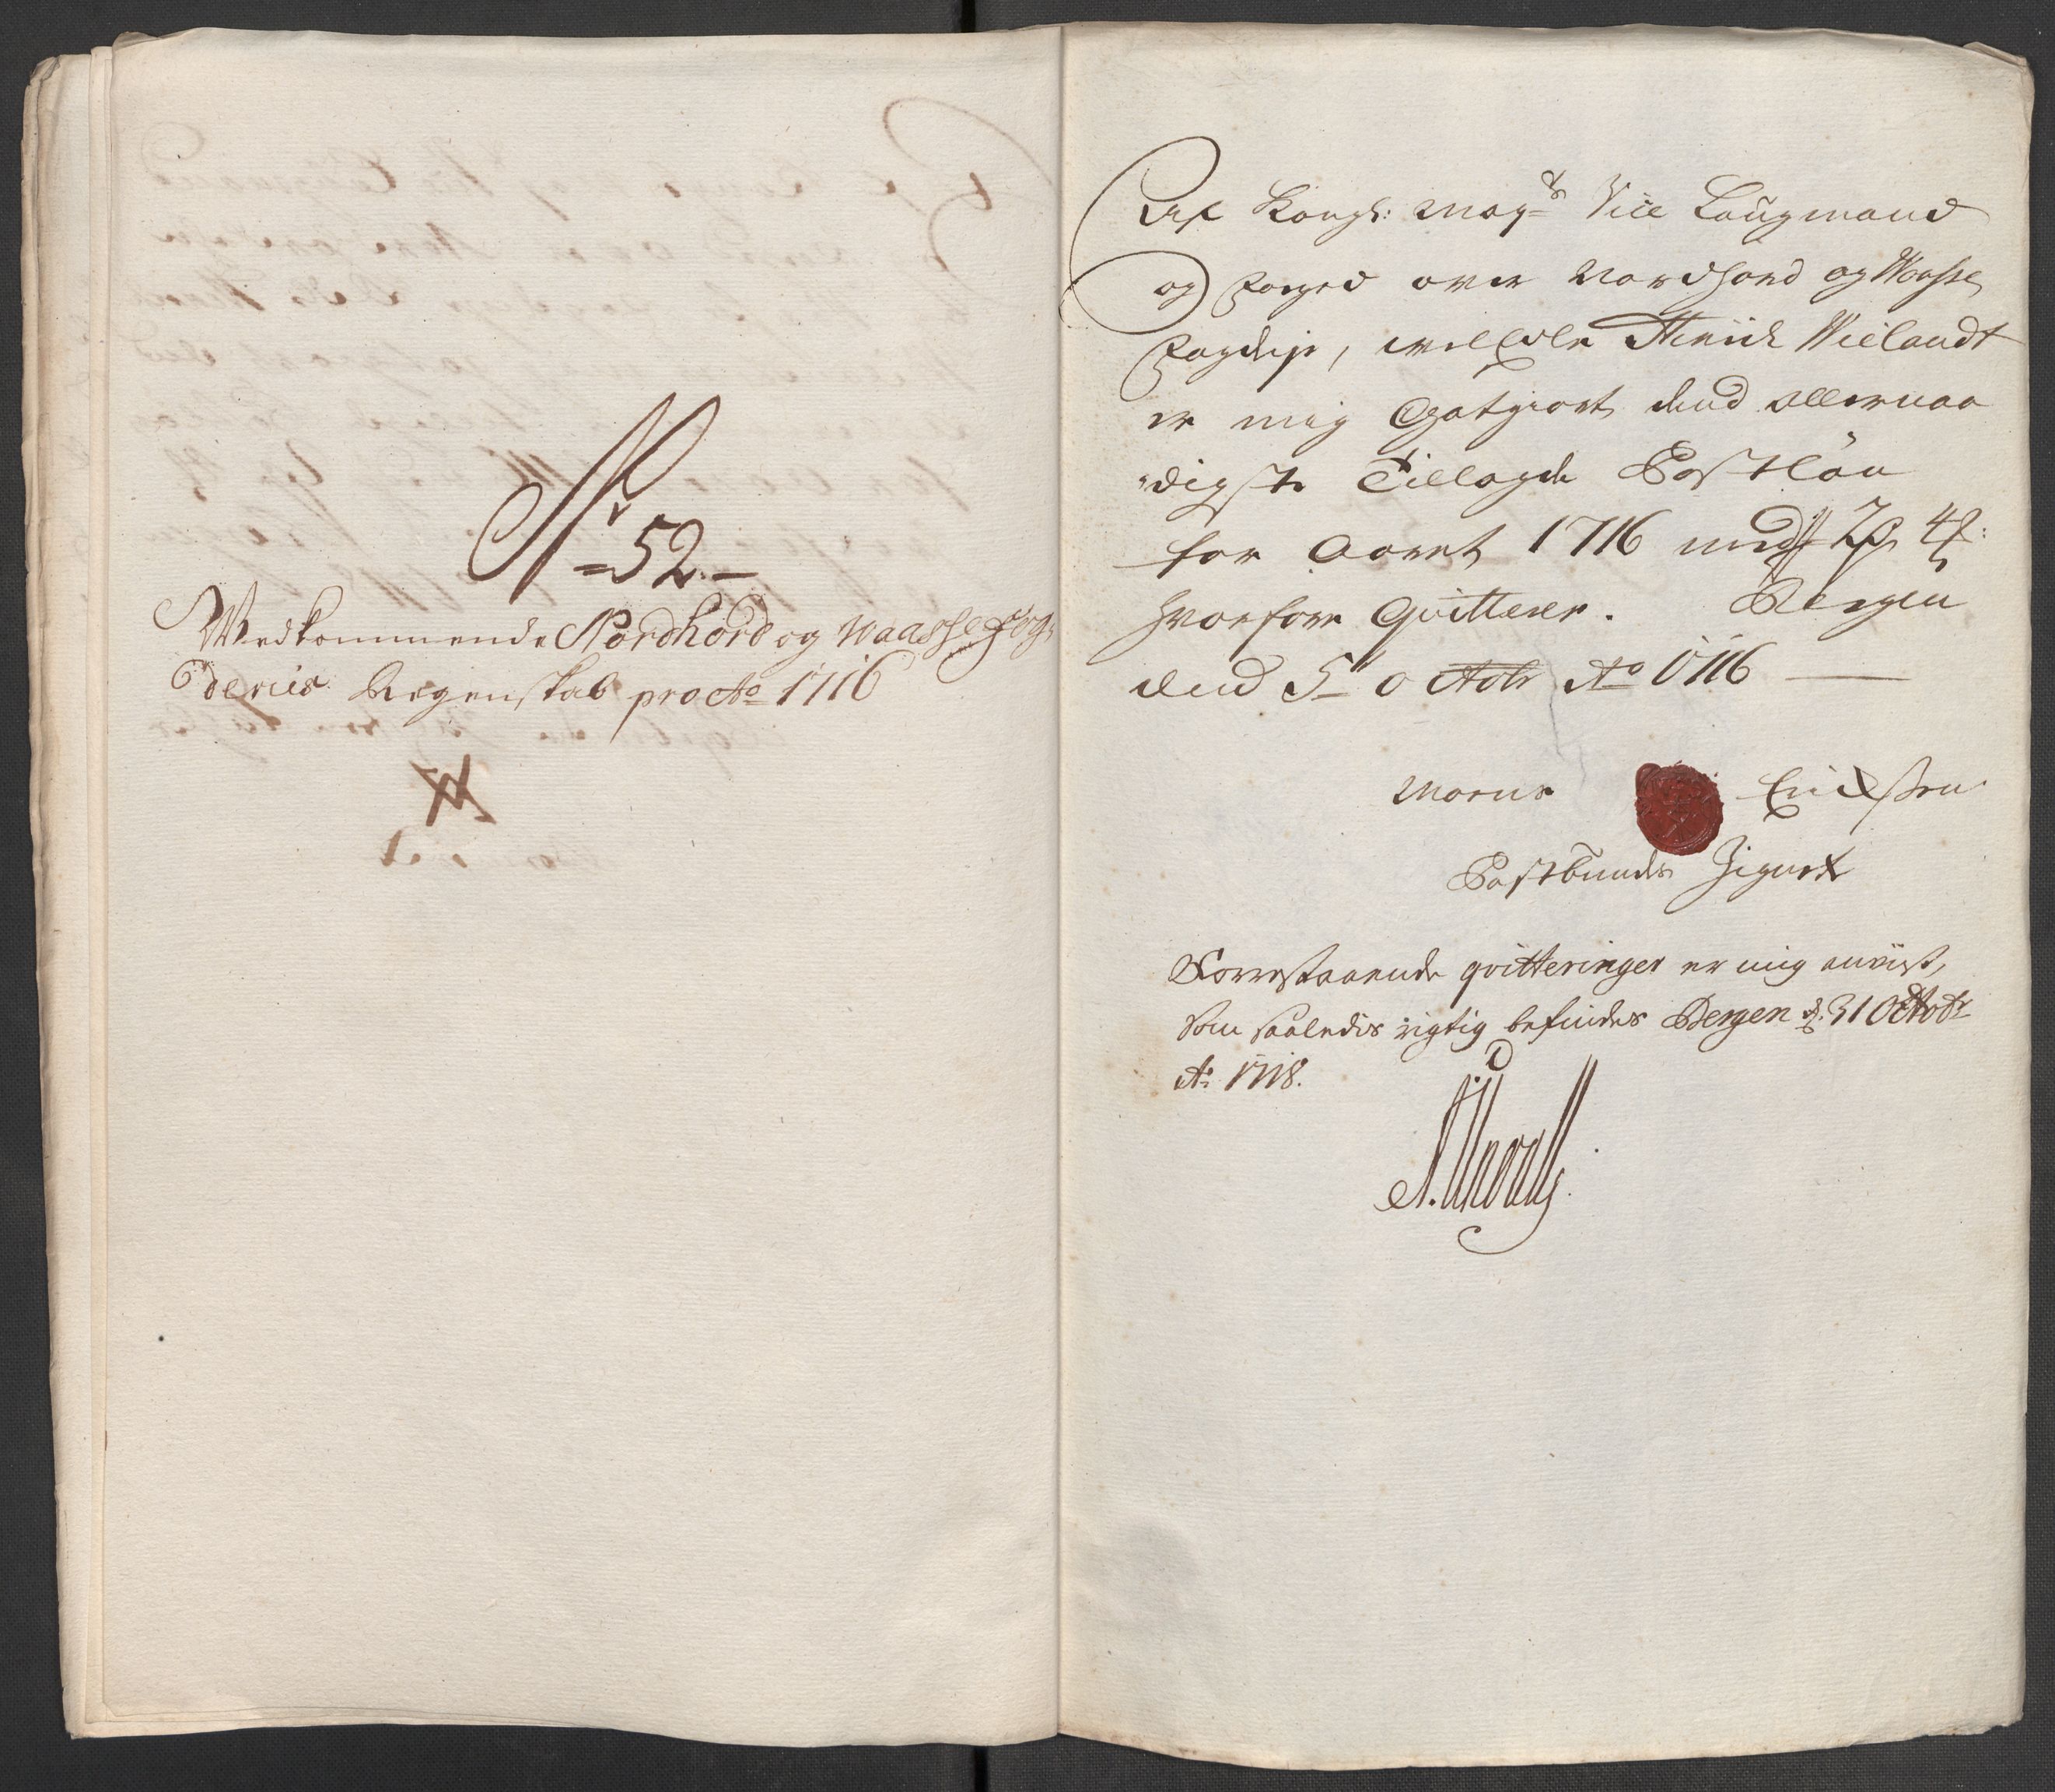 No 52.
Vedkommende Nordhord og Waasse Fog-
deries Regenskab pro Ao 1716
Af Kongl: Mayts Vice Laugmand
og Foeged over Nordhord og Wosse
Fogderje, velEdle Henrich Wielandt
er mig Gotgiort dend Allernaa
digste Tillagde Postløn
for Aaret 1716 med 2 4
hvorfore Qvitterer. Bergen
dend 5t October Ao 1716
Morns Erichsen
Postbundes Zignet
Forrestaaende qvitteringer er mig anvist,
som saaledis rigtig befindes Bergen d. 31 Octobr
Ao 1718.